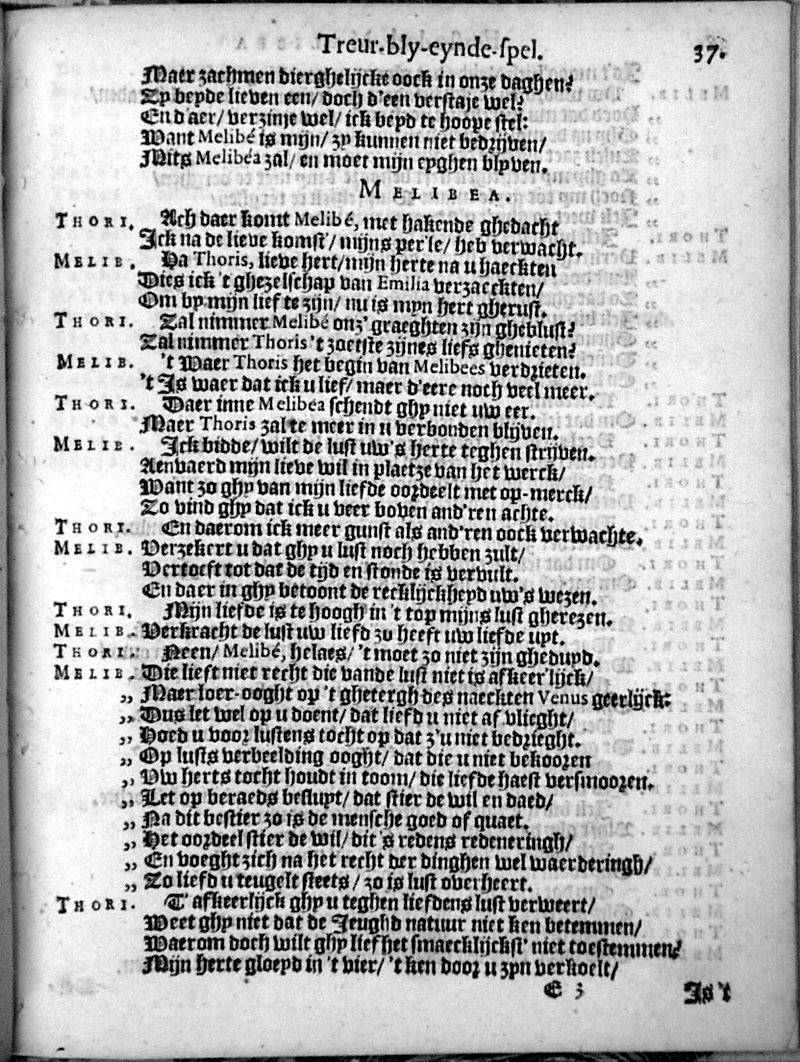 Treur-bly-eynde-spel. 37.
Maer zachmen dierghelijcke oock in onze daghen?
Zy beyde lieven een/ doch d'een verstaje wel?
En d'aer/ verzinje wel/ ick beyd te hoope stel:
Want Melibé is mijn/ zy kunnen niet bedrijven/
Mits Melibéa zal/ en moet mijn eyghen blyven.
MELIBEA.
THORI. Ach daer komt Melibé, met hakende ghedacht
Ick na de lieve komst'/ mijns per'le/ heb verwacht.
MELIB. Ha Thoris, lieve hert/ mijn herte na u haeckten
Dies ick 't ghezelschap van Emilia verzaeckten/
Om by mijn lief te zijn/ nu is myn hert gherust.
THORI. Zal nimmer Melibé onz' graeghten zijn gheblust?
Zal nimmer Thoris 't zoetste zijnes liefs ghenieten?
MELIB. 't Waer Thoris het begin van Melibees verdrieten.
't Is waer dat ick u lief/ maer d'eere noch veel meer.
THORI. Daer inne Melibéa schendt ghy niet uw eer.
Maer Thoris zal te meer in u verbonden blijven.
MELIB. Ick bidde/ wilt de lust uw's herte teghen strijven.
Aenvaerd mijn lieve wil in plaetze van het werck/
Want zo ghy van mijn liefde oordeelt met op-merck/
Zo vind ghy dat ick u veer boven and'ren achte.
THORI. En daerom ick meer gunst als and'ren oock verwachte.
MELIB. Verzekert u dat ghy u lust noch hebben zult/
Vertoeft tot dat de tijd en stonde is vervult.
En daer in ghy betoont de recklijckheyd uw's wezen.
THORI. Mijn liefde is te hoogh in 't top mijns lust gherezen.
MELIB. Verkracht de lust uw liefd zo heeft uw liefde uyt.
THORI. Neen/ Melibé, helaes/ 't moet zo niet zijn gheduyd.
MELIB. Die lieft niet recht die vande lust niet is afkeer'lijck/
„ Maer loer-ooght op 't ghetergh des naeckten Venus geerlijck:
„ Dus let wel op u doent/ dat liefd u niet af vlieght/
„ Hoed u voor lustens tocht op dat z'u niet bedrieght.
„ Op lusts verbeelding ooght/ dat die u niet bekooren
„ Uw herts tocht houdt in toom/ die liefde haest versmooren.
„ Let op beraeds besluyt/ dat stier de wil en daed/
„ Na dit bestier zo is de mensche goed of quaet.
„ Het oordeel stier de wil/ dit 's redens redeneringh/
„ En voeght zich na het recht der dinghen wel waerderingh/
„ Zo liefd u teugelt steets/ zo is lust overheert.
THORI. T' afkeerlijck ghy u teghen liefdens lust verweert/
Weet ghy niet dat de Jeughd natuur niet ken betemmen/
Waerom doch wilt ghy lief het smaecklijckst' niet toestemmen?
Mijn herte gloeyd in 't vier/ 't ken door u zyn verkoelt/
E 3 Is 't